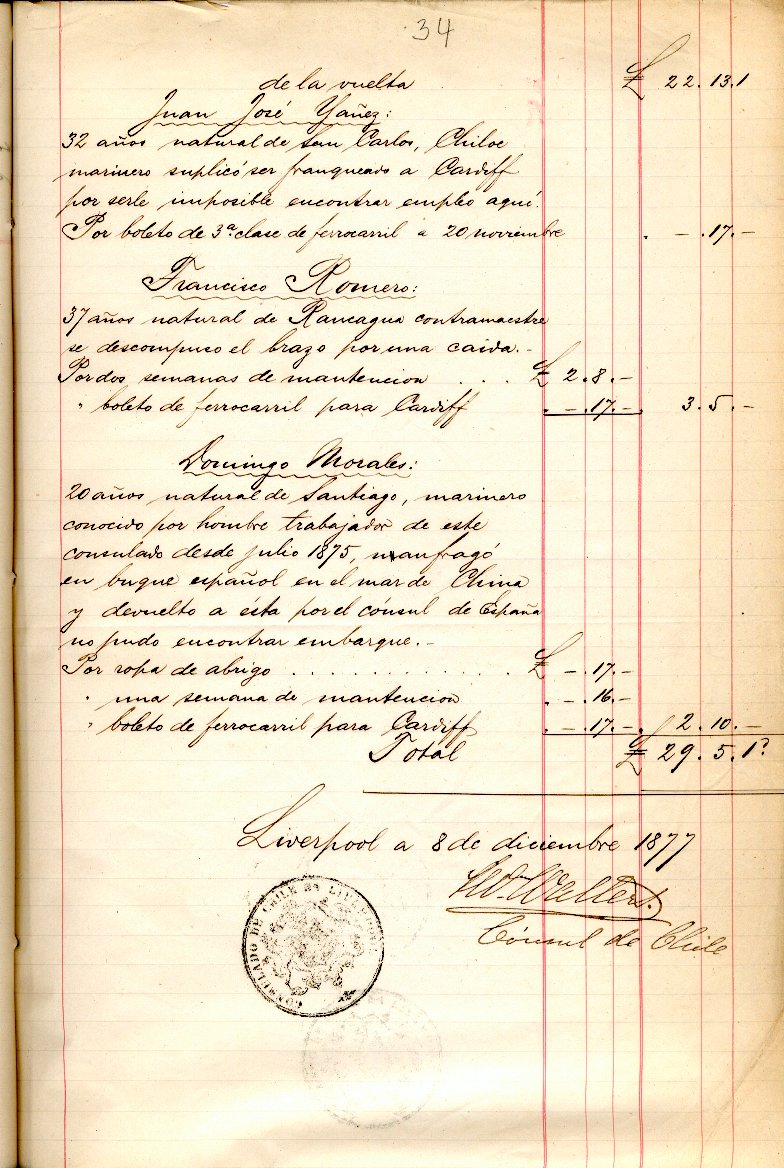 34
de la vuelta £ 22.13.1
Juan José Yañez:
32 años natural de San Carlos, Chiloe
marinero suplicó ser franqueado a Cardiff
por serle imposible encontrar empleo aquí.
Por boleto de 3ª clase de ferrocarril a 20 noviembre . – .17.–
Francisco Romero:
37 años natural de Rancagua contramaestre
se descompuso el brazo por una caida.–
Por dos semanas de mantencion . . . £ 2.8.–
" boleto de ferrocarril para Cardiff . –.17.– . 3.5.–
Domingo Morales:
20 años natural de Santiago, marinero
conocido por hombre trabajador de este
consulado desde julio 1875, naufragó
en buque español en el mar de China
y devuelto a ésta por el cónsul de España
no pudo encontrar embarque.–
Por ropa de abrigo . . . . . . . . . . . . . £ –.17.–
" una semana de mantencion . –.16.–
" boleto de ferrocarril para Cardiff . –.17.– . 2.10.–
Total £ 29.5.1?
Liverpool a 8 de diciembre 1877
Wm. Walters.
Cónsul de Chile
CONSULADO DE CHILE EN LIVERPOOL